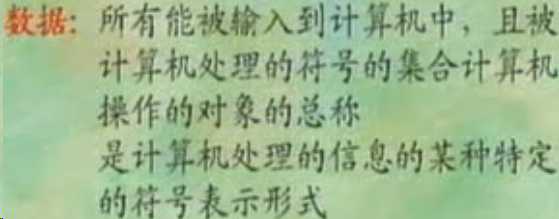 数据：所有能被输入到计算机中，且被
计算机处理的符号的集合计算机
操作的对象的总称
是计算机处理的信息的某种特定
的符号表示形式